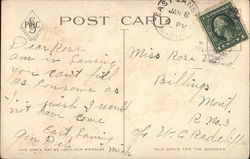 POST CARD
EAST LANSING
JAN 8
PM
Dear Rose
am in Lansing
you can't feel
as lonsome as
I wish I would
not have come
East Lansing
Mich
Miss Rose
Billings
Mont
R. No 3
c/o W. O. Radcliffe
THIS SPACE MAY BE USED FOR MESSAGE
THIS SPACE FOR THE ADDRESS